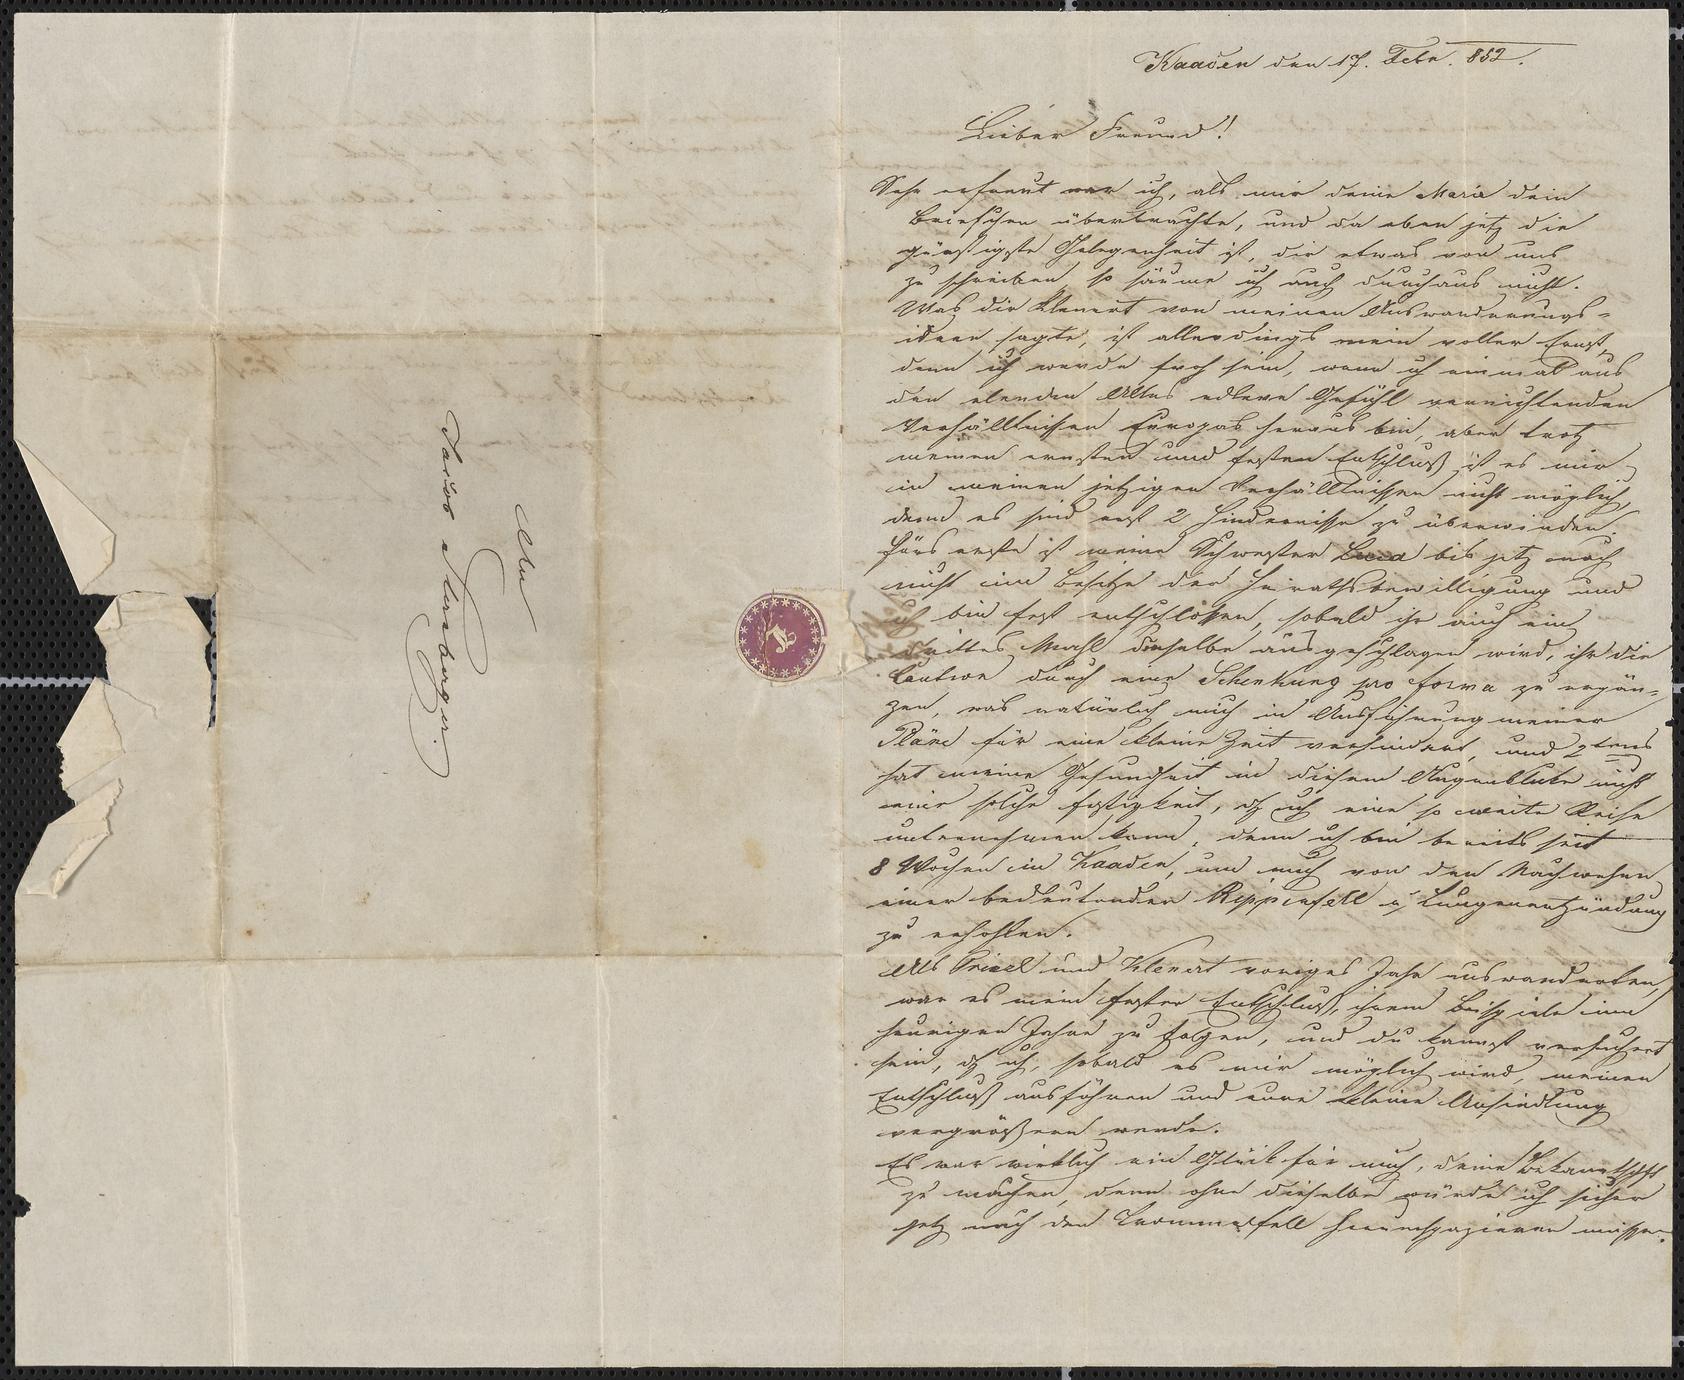 Kaaden den 17. Febr. 852.
Lieber Freund!
Sehr erfreut war ich, als mir deine Marie dein
Briefchen überbrachte, und da eben jetz die
günstigste Gelegenheit ist, dir etwas von uns
zu schreiben, so säume ich auch durchaus nicht.
Was dir Klenert von meinen Auswanderungs-
ideen sagte, ist allerdings mein voller Ernst,
denn ich werde froh sein, wenn ich einmal aus
den elenden Alles edlere Gefühl vernichtenden
Verhälltnissen Europas heraus bin, aber trotz
meinen ernsten und festen Entschluß ist es mir
in meinen jetzigen Verhälltnissen nicht möglich,
denn es sind erst 2 Hindernisse zu überwinden.
Fürs erste ist meine Schwester bis jetz noch
nicht im Besitze der Heirathsbewilligung und
ich bin fest entschlossen, sobald ihr auch ein
drittes Mahl dieselbe ausgeschlagen wird, ihr die
Caution durch eine Schenkung pro forma zu ergän-
zen, was natürlich mich in Ausführung meiner
Pläne für eine kleine Zeit verhindert, und 2tens
hat meine Gesundheit in diesem Augenblicke nicht
eine solche festigkeit, dß ich eine so weite Reise
unternehmen kann, denn ich bin bereits seit
8 Wochen in Kaaden, um mich von den Nachwehen
einer bedeutenden Rippenfell u Lungenentzündung
zu erhohlen.
Als und Klenert voriges Jahr auswanderten,
war es mein fester Entschluß, ihrem Beispiele im
heurigen Jahre zu folgen, und du kannst versichert
sein, dß ich, sobald es mir möglich wird, meinen
Entschluß ausführen und eure kleine Ansiedlung
vergrößern werde.
Es war wirklich ein Glück für mich, deine Bekanntschft
zu machen, denn ohne dieselbe würde ich sicher
jetz nach den Trommelfell herumspazieren müssen.
An